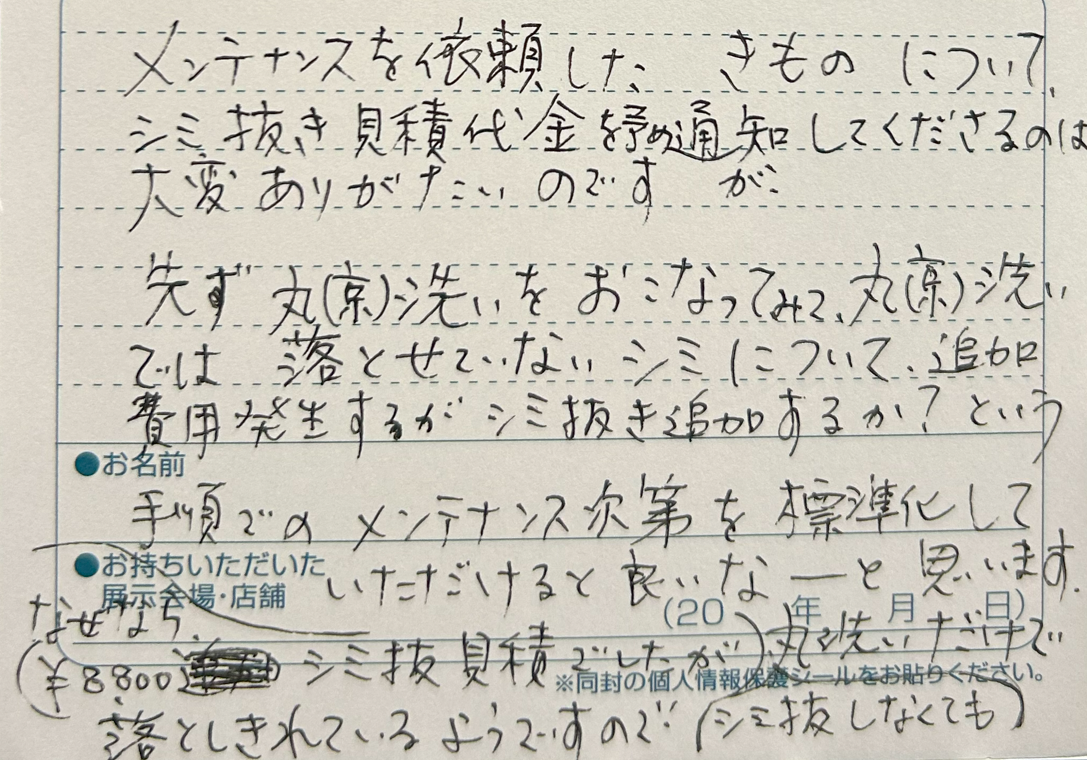 メンテナンスを依頼した きものについて、
シミ抜き見積代金を予め通知してくださるのは
大変ありがたいのですが、
先ず丸(京)洗いをおこなってみて、丸(京)洗い
では 落とせていないシミについて、追加
費用発生するがシミ抜き追加するか?という
●お名前
手順でのメンテナンス次第を標準化して
●お持ちいただいた
展示会場・店舗
いただけると良いなーと思います。
(20 年 月 日)
なぜなら、
(¥8800 シミ抜見積でしたが)丸洗いだけで
※同封の個人情報保護シールをお貼りください。
落としきれているようですので(シミ抜しなくても)